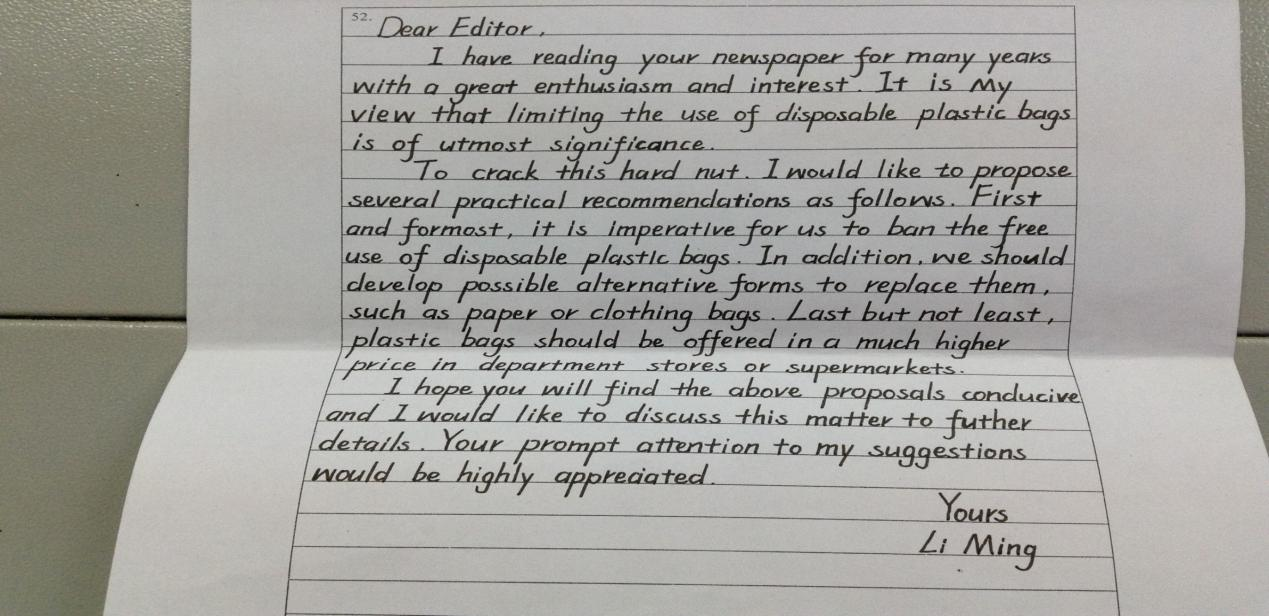 52.
Dear Editor,
I have reading your newspaper for many years
with a great enthusiasm and interest. It is my
view that limiting the use of disposable plastic bags
is of utmost significance.
To crack this hard nut. I would like to propose
several practical recommendations as follows. First
and formost, it is imperative for us to ban the free
use of disposable plastic bags. In addition, we should
develop possible alternative forms to replace them,
such as paper or clothing bags. Last but not least,
plastic bags should be offered in a much higher
price in department stores or supermarkets.
I hope you will find the above proposals conducive
and I would like to discuss this matter to futher
details. Your prompt attention to my suggestions
would be highly appreciated.
Yours
Li Ming